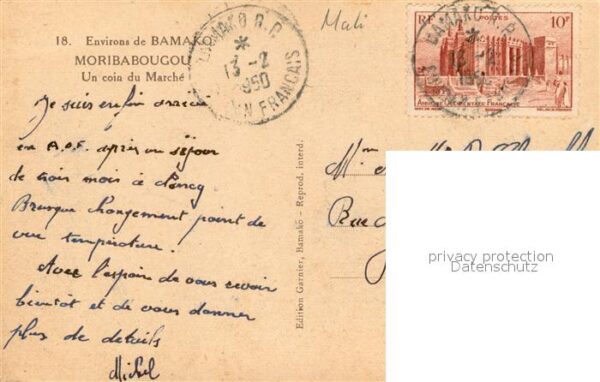 18. Environs de BAMAKO
MORIBABOUGOU
Un coin du Marché
BAMAKO R.P.
13-2
1950
SOUDAN FRANÇAIS
Mali
RF POSTES 10F
AFRIQUE OCCIDENTALE FRANÇAISE
BAMAKO R.P.
Je suis enfin
en A.O.F. après un séjour
de trois mois à
Brusque changement point de
vue température.
Avec l'espoir de vous revoir
bientôt et de vous donner
plus de détails
Michel
Edition Garnier, Bamako - Reprod. interd.
Rue
privacy protection
Datenschutz